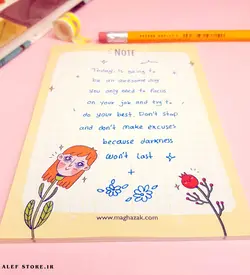 NOTE
Today is going to
be an awesome day
you only need to focus
on your job and try to
do your best. Don't stop
and don't make excuses
because darkness
won't last
www.maghazak.com
ALEF STORE.IR